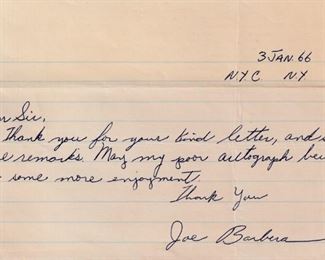 3 JAN. 66
NYC. NY
Sir,
Thank you for your kind letter, and
remarks. May my poor autograph
some more enjoyment.
Thank You
Joe Barbera